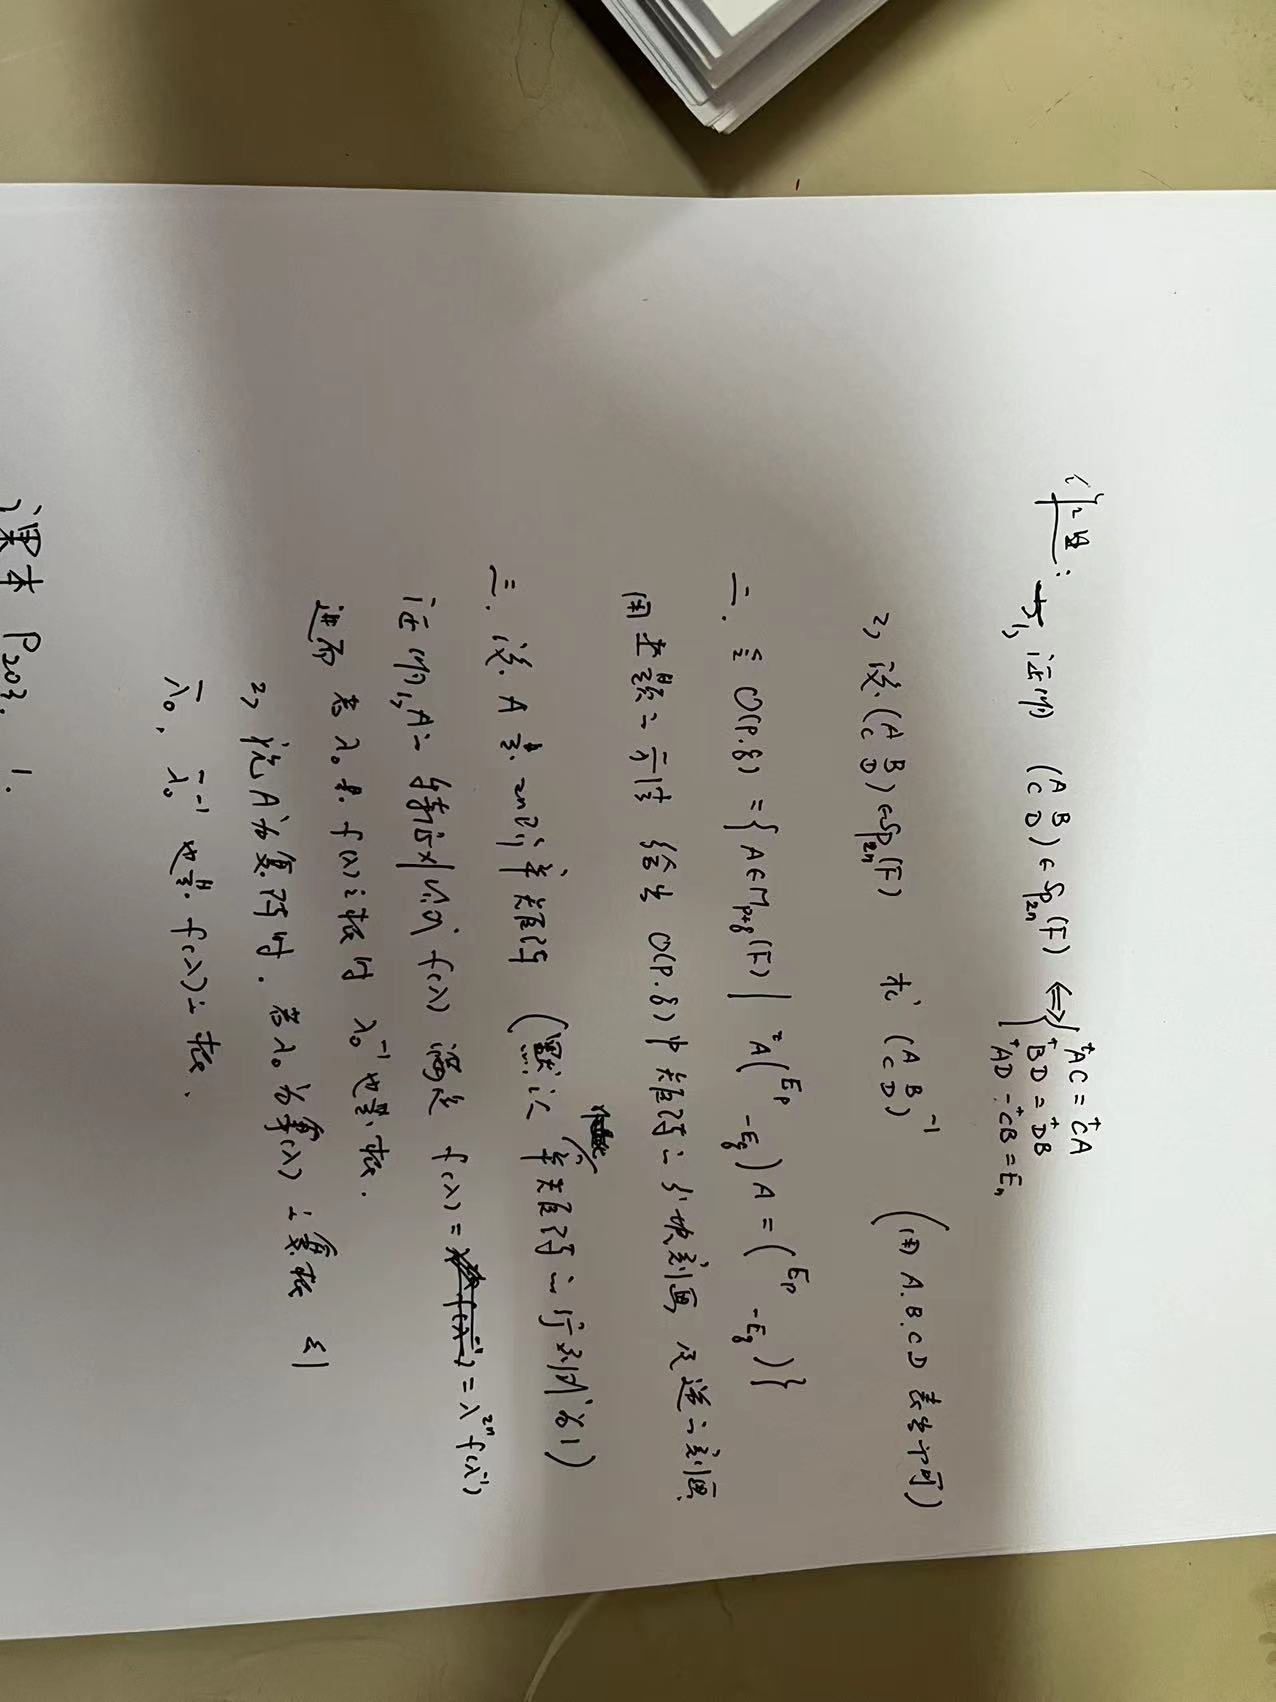 作业: 一, 1, 证明 (A B C D) ∈ Sp₂ₙ(F) ⇔ { ᵗAC = ᵗCA
ᵗBD = ᵗDB
ᵗAD - ᵗCB = Eₙ
2, 设 (A B C D) ∈ Sp₂ₙ(F) 求 (A B C D)⁻¹ (用 A.B.C.D 表出即可)
二. O(p.q) = { A∈M_{p+q}(F) | ᵗA (E_p -E_q) A = (E_p -E_q) }
用上题之方法 给出 O(p.q) 中矩阵之分块刻画 及逆之刻画
三. 设 A 是 2n阶辛矩阵 (默认 辛矩阵之行列式为1)
证明, 1, A之特征多项式 f(λ) 满足 f(λ) = λ²ⁿ f(λ⁻¹)
进而 若 λ₀ 是 f(λ) 之根 则 λ₀⁻¹ 也是根.
2, 说 A 为实阵时. 若 λ₀ 为 f(λ) 之复根 则
λ̄₀, λ̄₀⁻¹ 也是 f(λ) 之根.
课本 P203. 1.